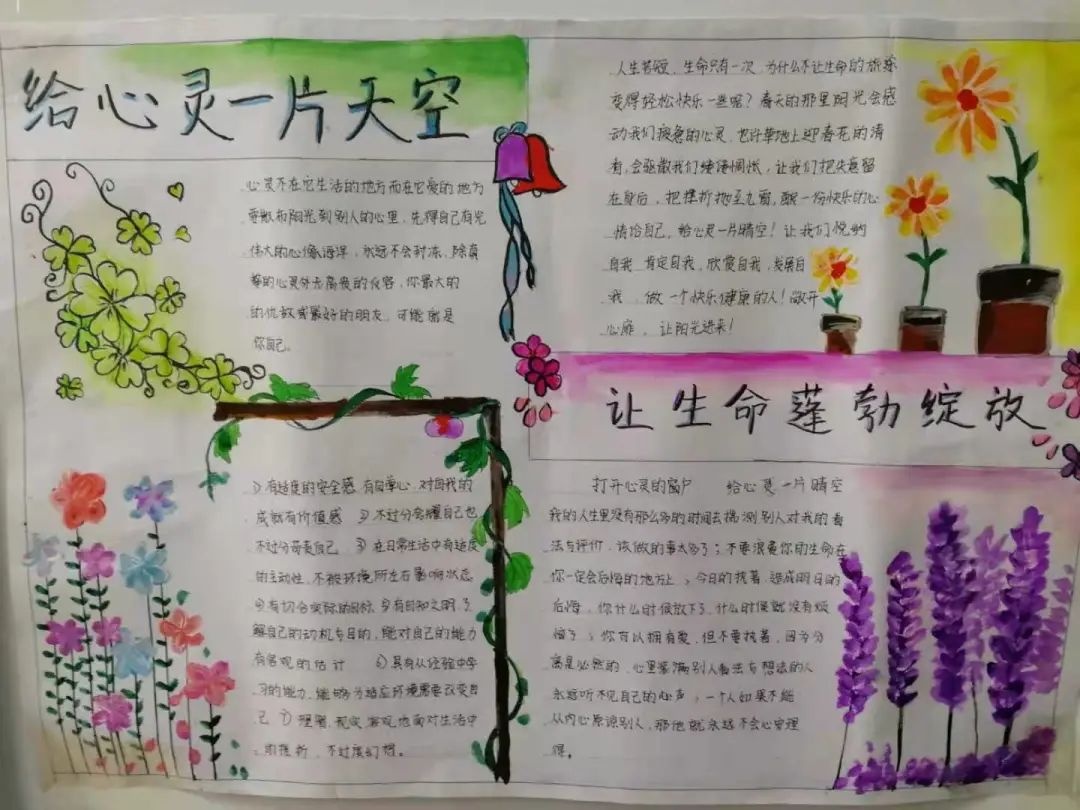 给心灵一片天空
心灵不在它生活的地方而在它爱的地方
要散布阳光到别人的心里，先得自己有光
伟大的心像海洋，永远不会封冻，除
的心灵外失高贵的仪容，你最大的
的仇敌或最好的朋友，可能就是
你自己。
1）有适度的安全感，有自尊心，对自我的
成就有价值感 2）不过分夸耀自己也
不过分苛责自己 3）在日常生活中有适度
的主动性，不被环境所左右影响状态
4）有切合实际的目标 5）有自知之明，了
解自己的动机与目的，能对自己的能力
有客观的估计 6）具有从经验中学
习的能力，能够为适应环境需要改变自
己 7）理智、现实、客观地面对生活中
的挫折，不过度幻想。
人生苦短，生命只有一次，为什么不让生命的旅途
变得轻松快乐一些呢？春天的那里阳光会感
动我们疲惫的心灵，也许草地上迎春花的清
香，会驱散我们缕缕惆怅，让我们把失意留
在身后，把挫折抛至九霄，酿一份快乐的心
情给自己，给心灵一片晴空！让我们悦纳
自我，肯定自我，欣赏自我，发展自
我，做一个快乐健康的人！敞开
心扉，让阳光进来！
让生命蓬勃绽放
打开心灵的窗户 给心灵一片晴空
我的人生里没有那么多的时间去揣测别人对我的看
法与评价，该做的事太多了；不要浪费你的生命在
你一定会后悔的地方上；今日的执着，造成明日的
后悔，你什么时候放下了，什么时候就没有烦
恼了；你可以拥有爱，但不要执着，因为分
离是必然的，心里装满别人看法与想法的人
永远听不见自己的心声，一个人如果不能
从内心原谅别人，那他就永远不会心安理
得。